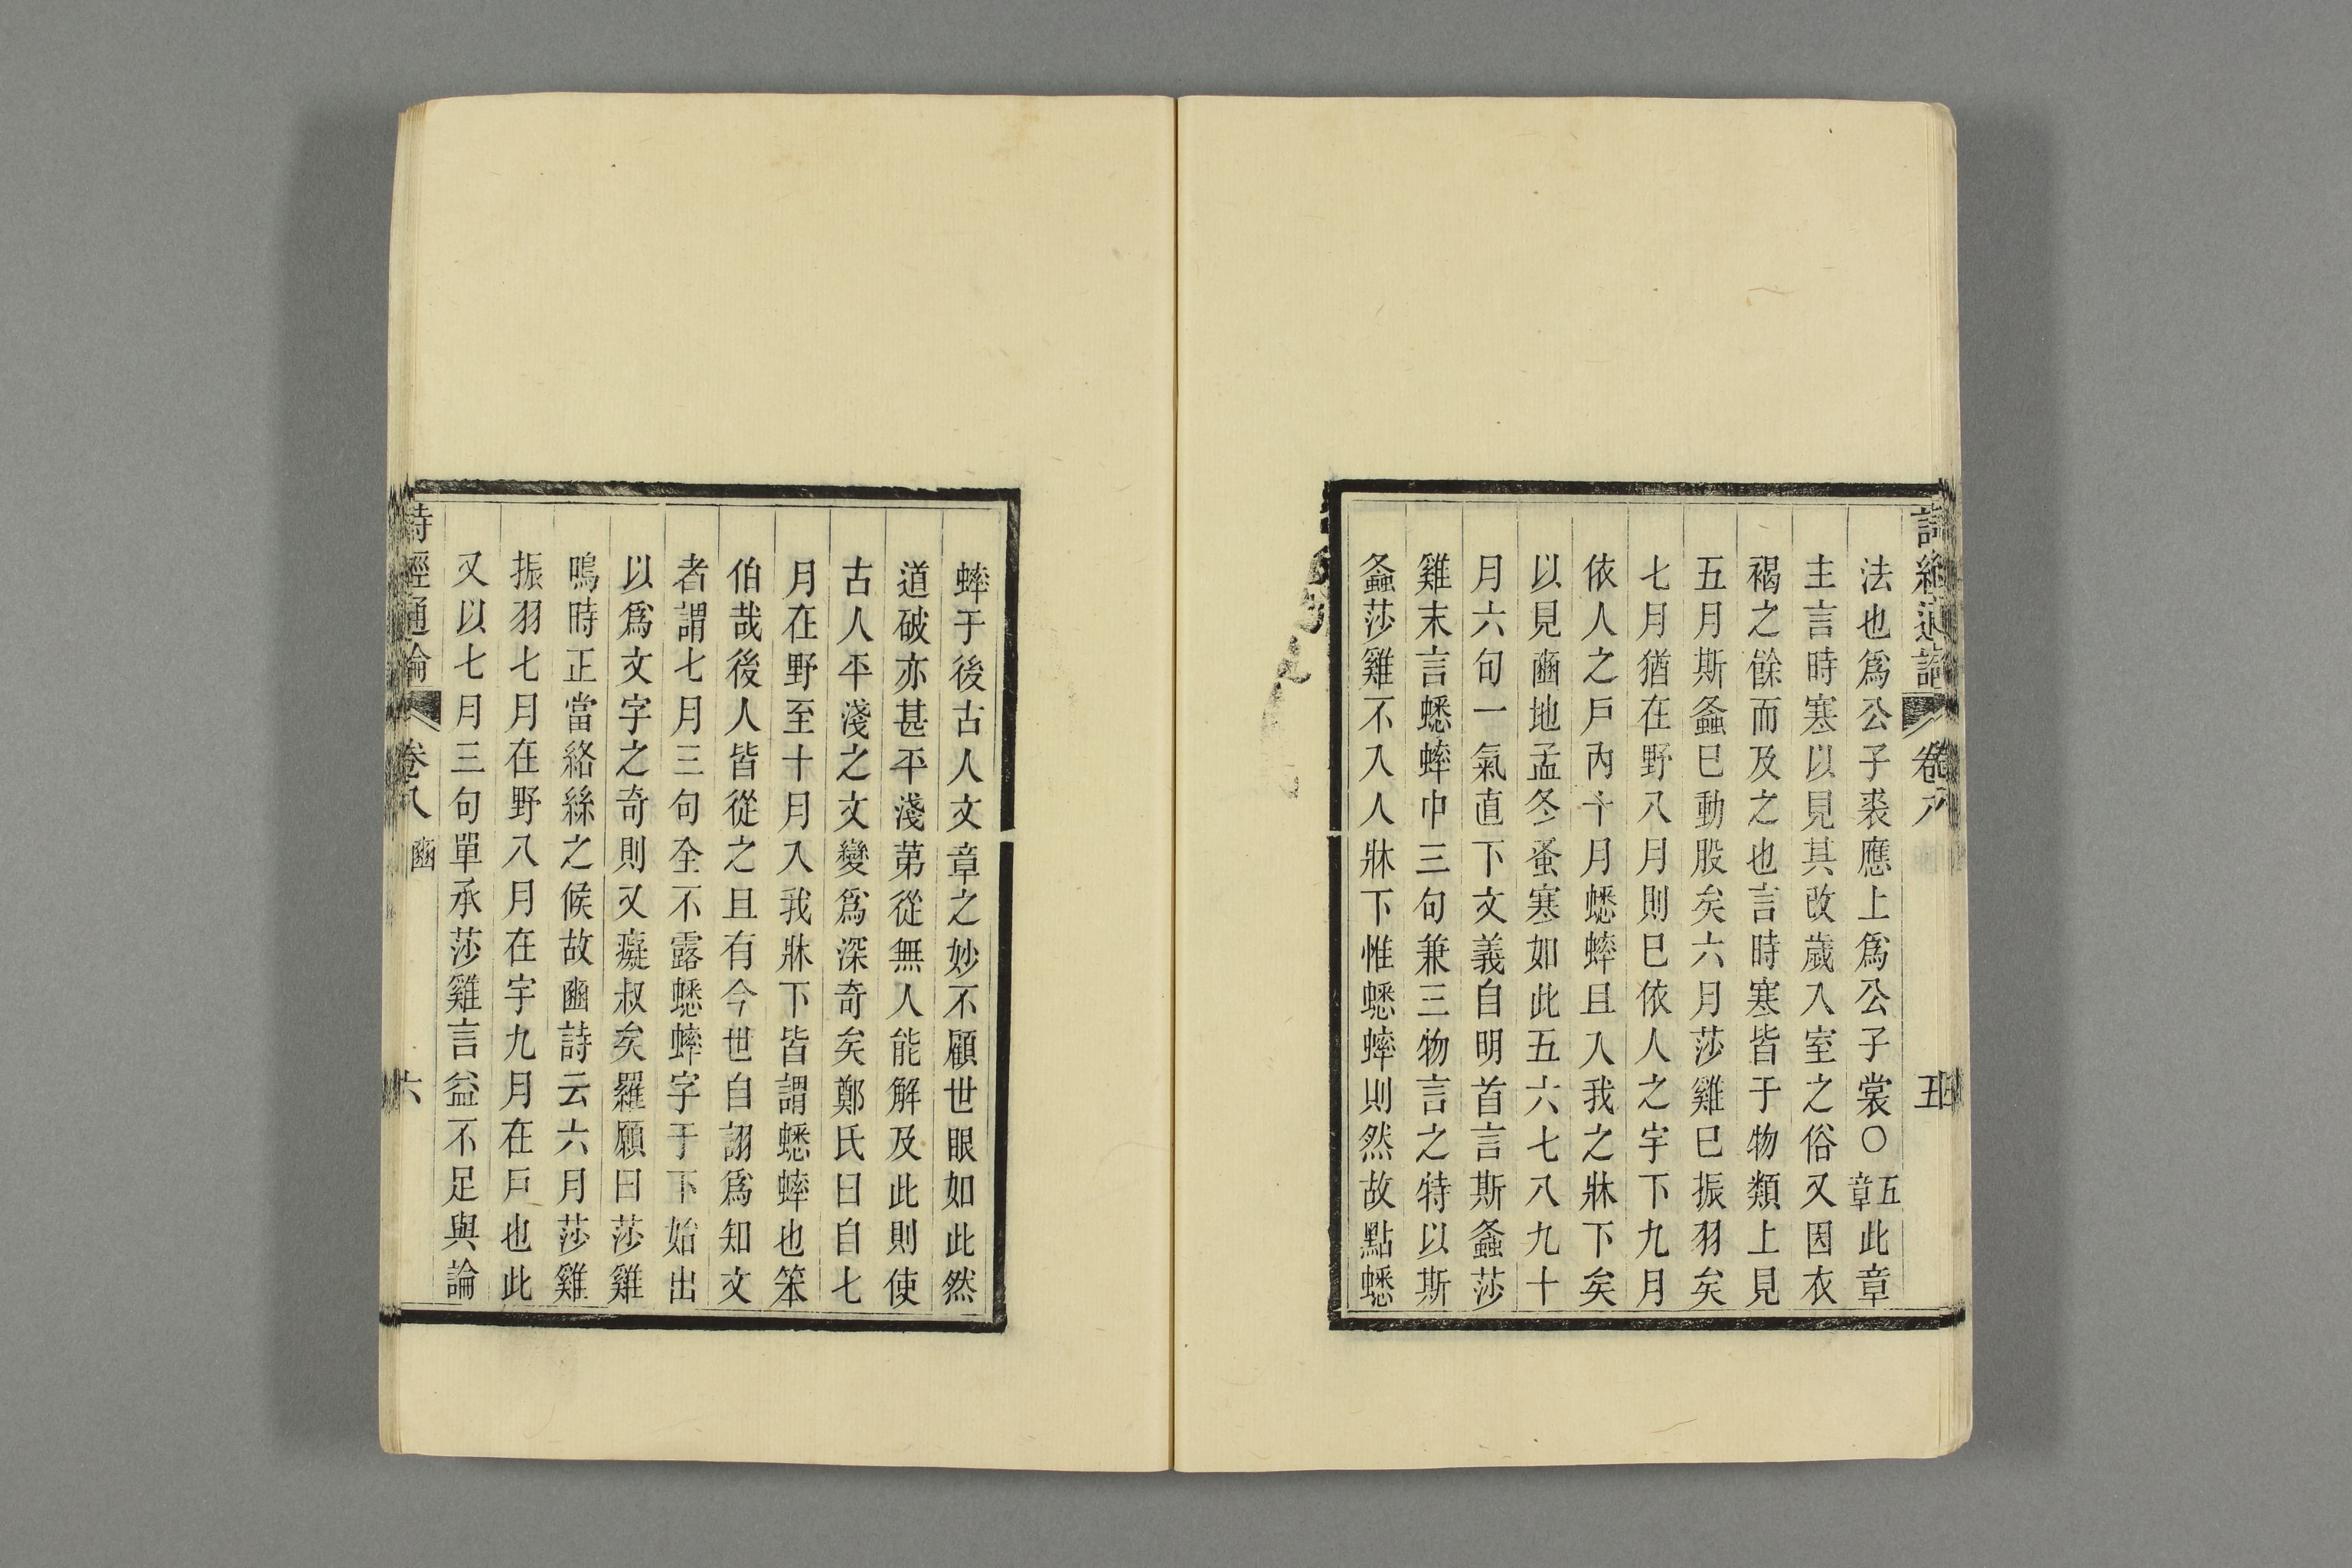 詩經通論 卷八 五
法也爲公子裘應上爲公子裳〇五章此章
主言時寒以見其改歲入室之俗又因衣
褐之餘而及之也言時寒皆于物類上見
五月斯螽巳動股矣六月莎雞巳振羽矣
七月猶在野八月則巳依人之宇下九月
依人之戶內十月蟋蟀且入我之牀下矣
以見豳地孟冬蚤寒如此五六七八九十
月六句一氣直下文義自明首言斯螽莎
雞末言蟋蟀中三句兼三物言之特以斯
螽莎雞不入人牀下惟蟋蟀則然故點蟋
蟀于後古人文章之妙不顧世眼如此然
道破亦甚平淺苐從無人能解及此則使
古人平淺之文變爲深奇矣鄭氏曰自七
月在野至十月入我牀下皆謂蟋蟀也笨
伯哉後人皆從之且有今世自詡爲知文
者謂七月三句全不露蟋蟀字于下始出
以爲文字之奇則又癡叔矣羅願曰莎雞
鳴時正當絡絲之候故豳詩云六月莎雞
振羽七月在野八月在宇九月在戶也此
又以七月三句單承莎雞言益不足與論
詩經通論 卷八 豳 六